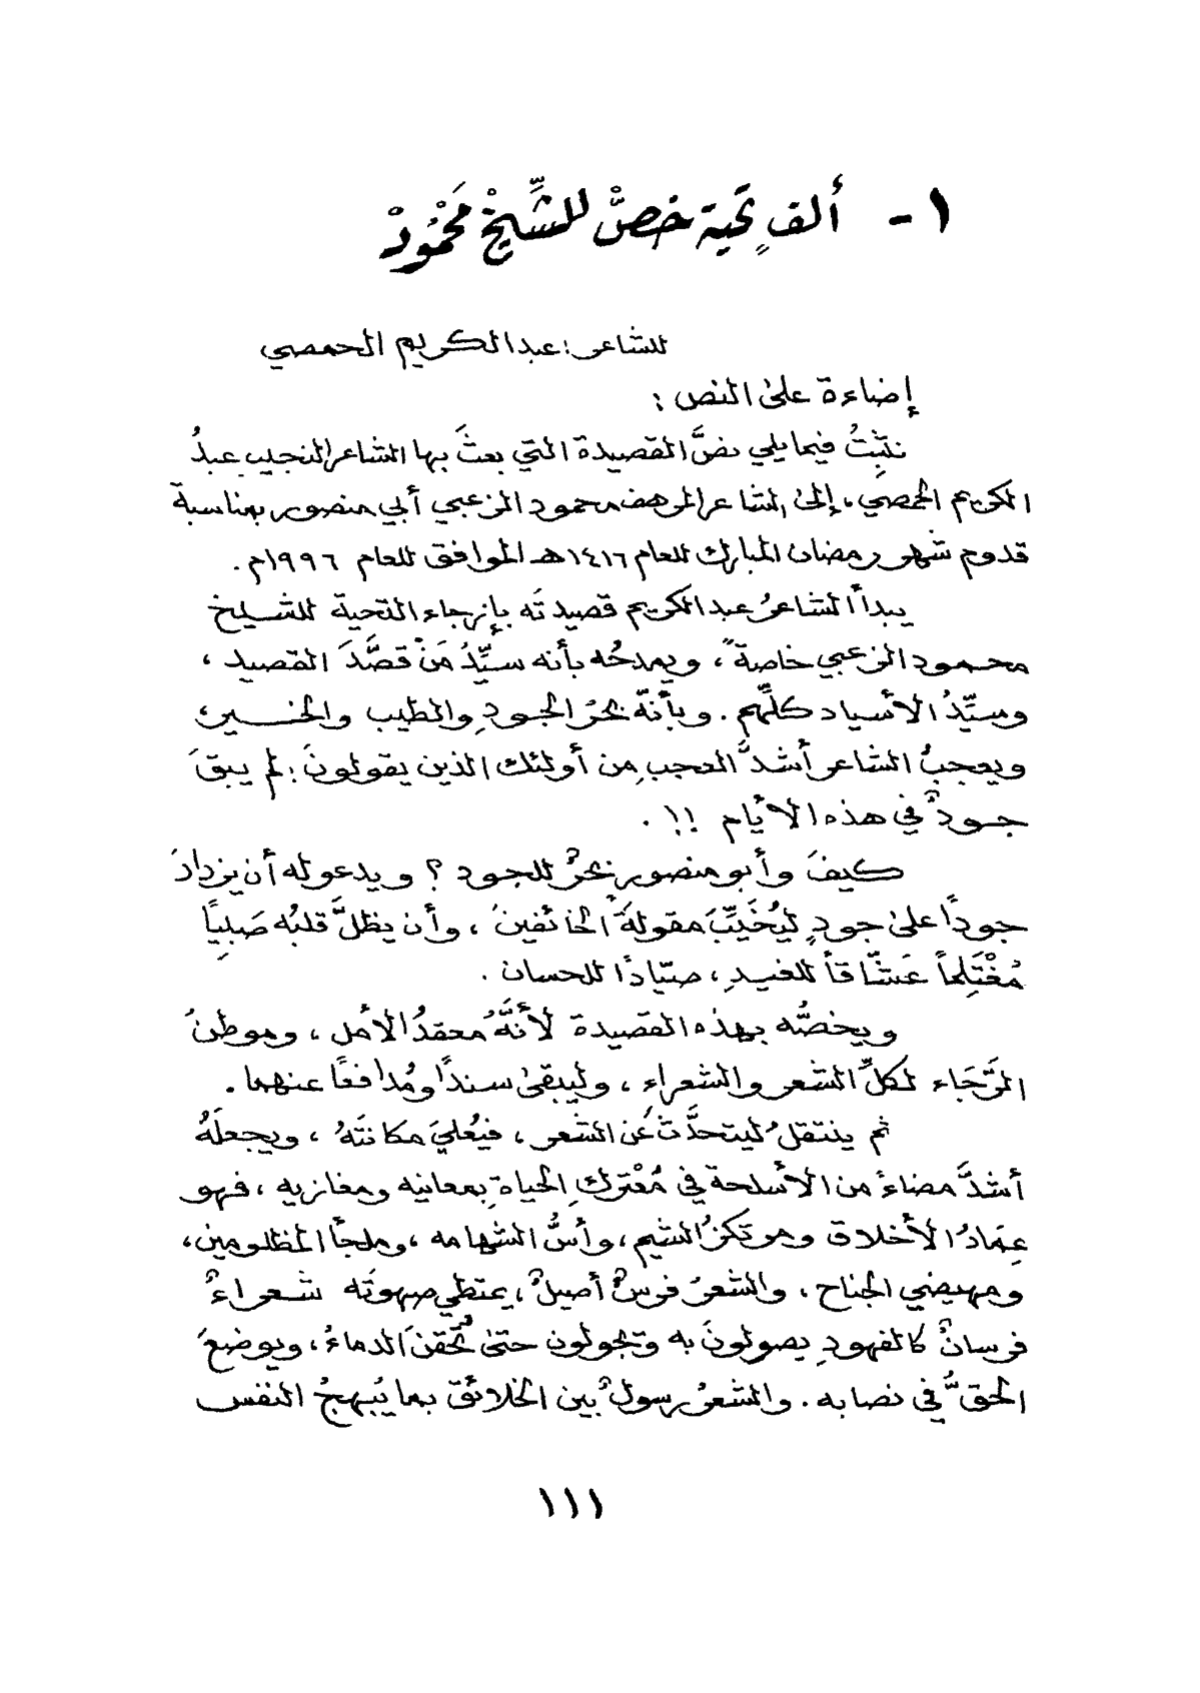 ١- ألف تحيةٍ خصّْ للشِّيخْ مَحْمُودْ
للشاعر: عبد الكريم الحمصي
إضاءة على النص:
نثبِتُ فيما يلي نصَّ القصيدة التي بعثَ بها الشاعر النجيب عبدُ
الكريم الحمصي، إلى الشاعر المرهف محمود الزعبي أبي منصور بمناسبة
قدوم شهر رمضان المبارك للعام ١٤١٦هـ الموافق للعام ١٩٩٦م.
يبدأ الشاعرُ عبد الكريم قصيدتَه بإزجاء التحية للشيخ
محمود الزعبي خاصةً، ويمدحُه بأنه سيِّدُ مَنْ قصَّدَ القصيد،
وسيِّدُ الأسياد كلِّهم. وبأنّه بحرُ الجودِ والطيب والخير،
ويعجبُ الشاعر أشدَّ العجبِ من أولئك الذين يقولونَ: لم يبقَ
جودٌ في هذه الأيام !!.
كيفَ وأبو منصور بحرٌ للجود ؟ ويدعو له أن يزدادَ
جوداً على جودٍ ليُخَيِّبَ مقولةَ الخائفينَ، وأن يظلَّ قلبُه صَلبِياً
مُغْتَلِماً عَشّاقاً للغيدِ، صيّادًا للحسان.
ويخصُّه بهذه القصيدة لأنَّهُ معقدُ الأمل، وموطنُ
الرَّجَاء لكلِّ الشعر والشعراءِ، وليبقى سنداً ومُدافعًا عنهما.
ثم ينتقلُ ليتحدَّثَ عن الشعر، فيُعليَ مكانتَهُ، ويجعلَهُ
أشدَّ مضاءً من الأسلحة في مُعْتركِ الحياةِ بمعانيه ومغازيه، فهو
عِمَادُ الأخلاق ومرتكزُ الشيم، وأسُّ الشهامه، وملجأ المظلومين،
ومهيضي الجناح، والشعرُ فرسٌ أصيلٌ، يمتطي صهوتَه شعراءٌ
فرسانٌ كالفهودِ يصولونَ به ويجولون حتى تُحقنَ الدماءُ، ويوضعَ
الحقُّ في نصابه. والشعرُ رسولٌ بين الخلائق بما يُبهجُ النفس
١١١